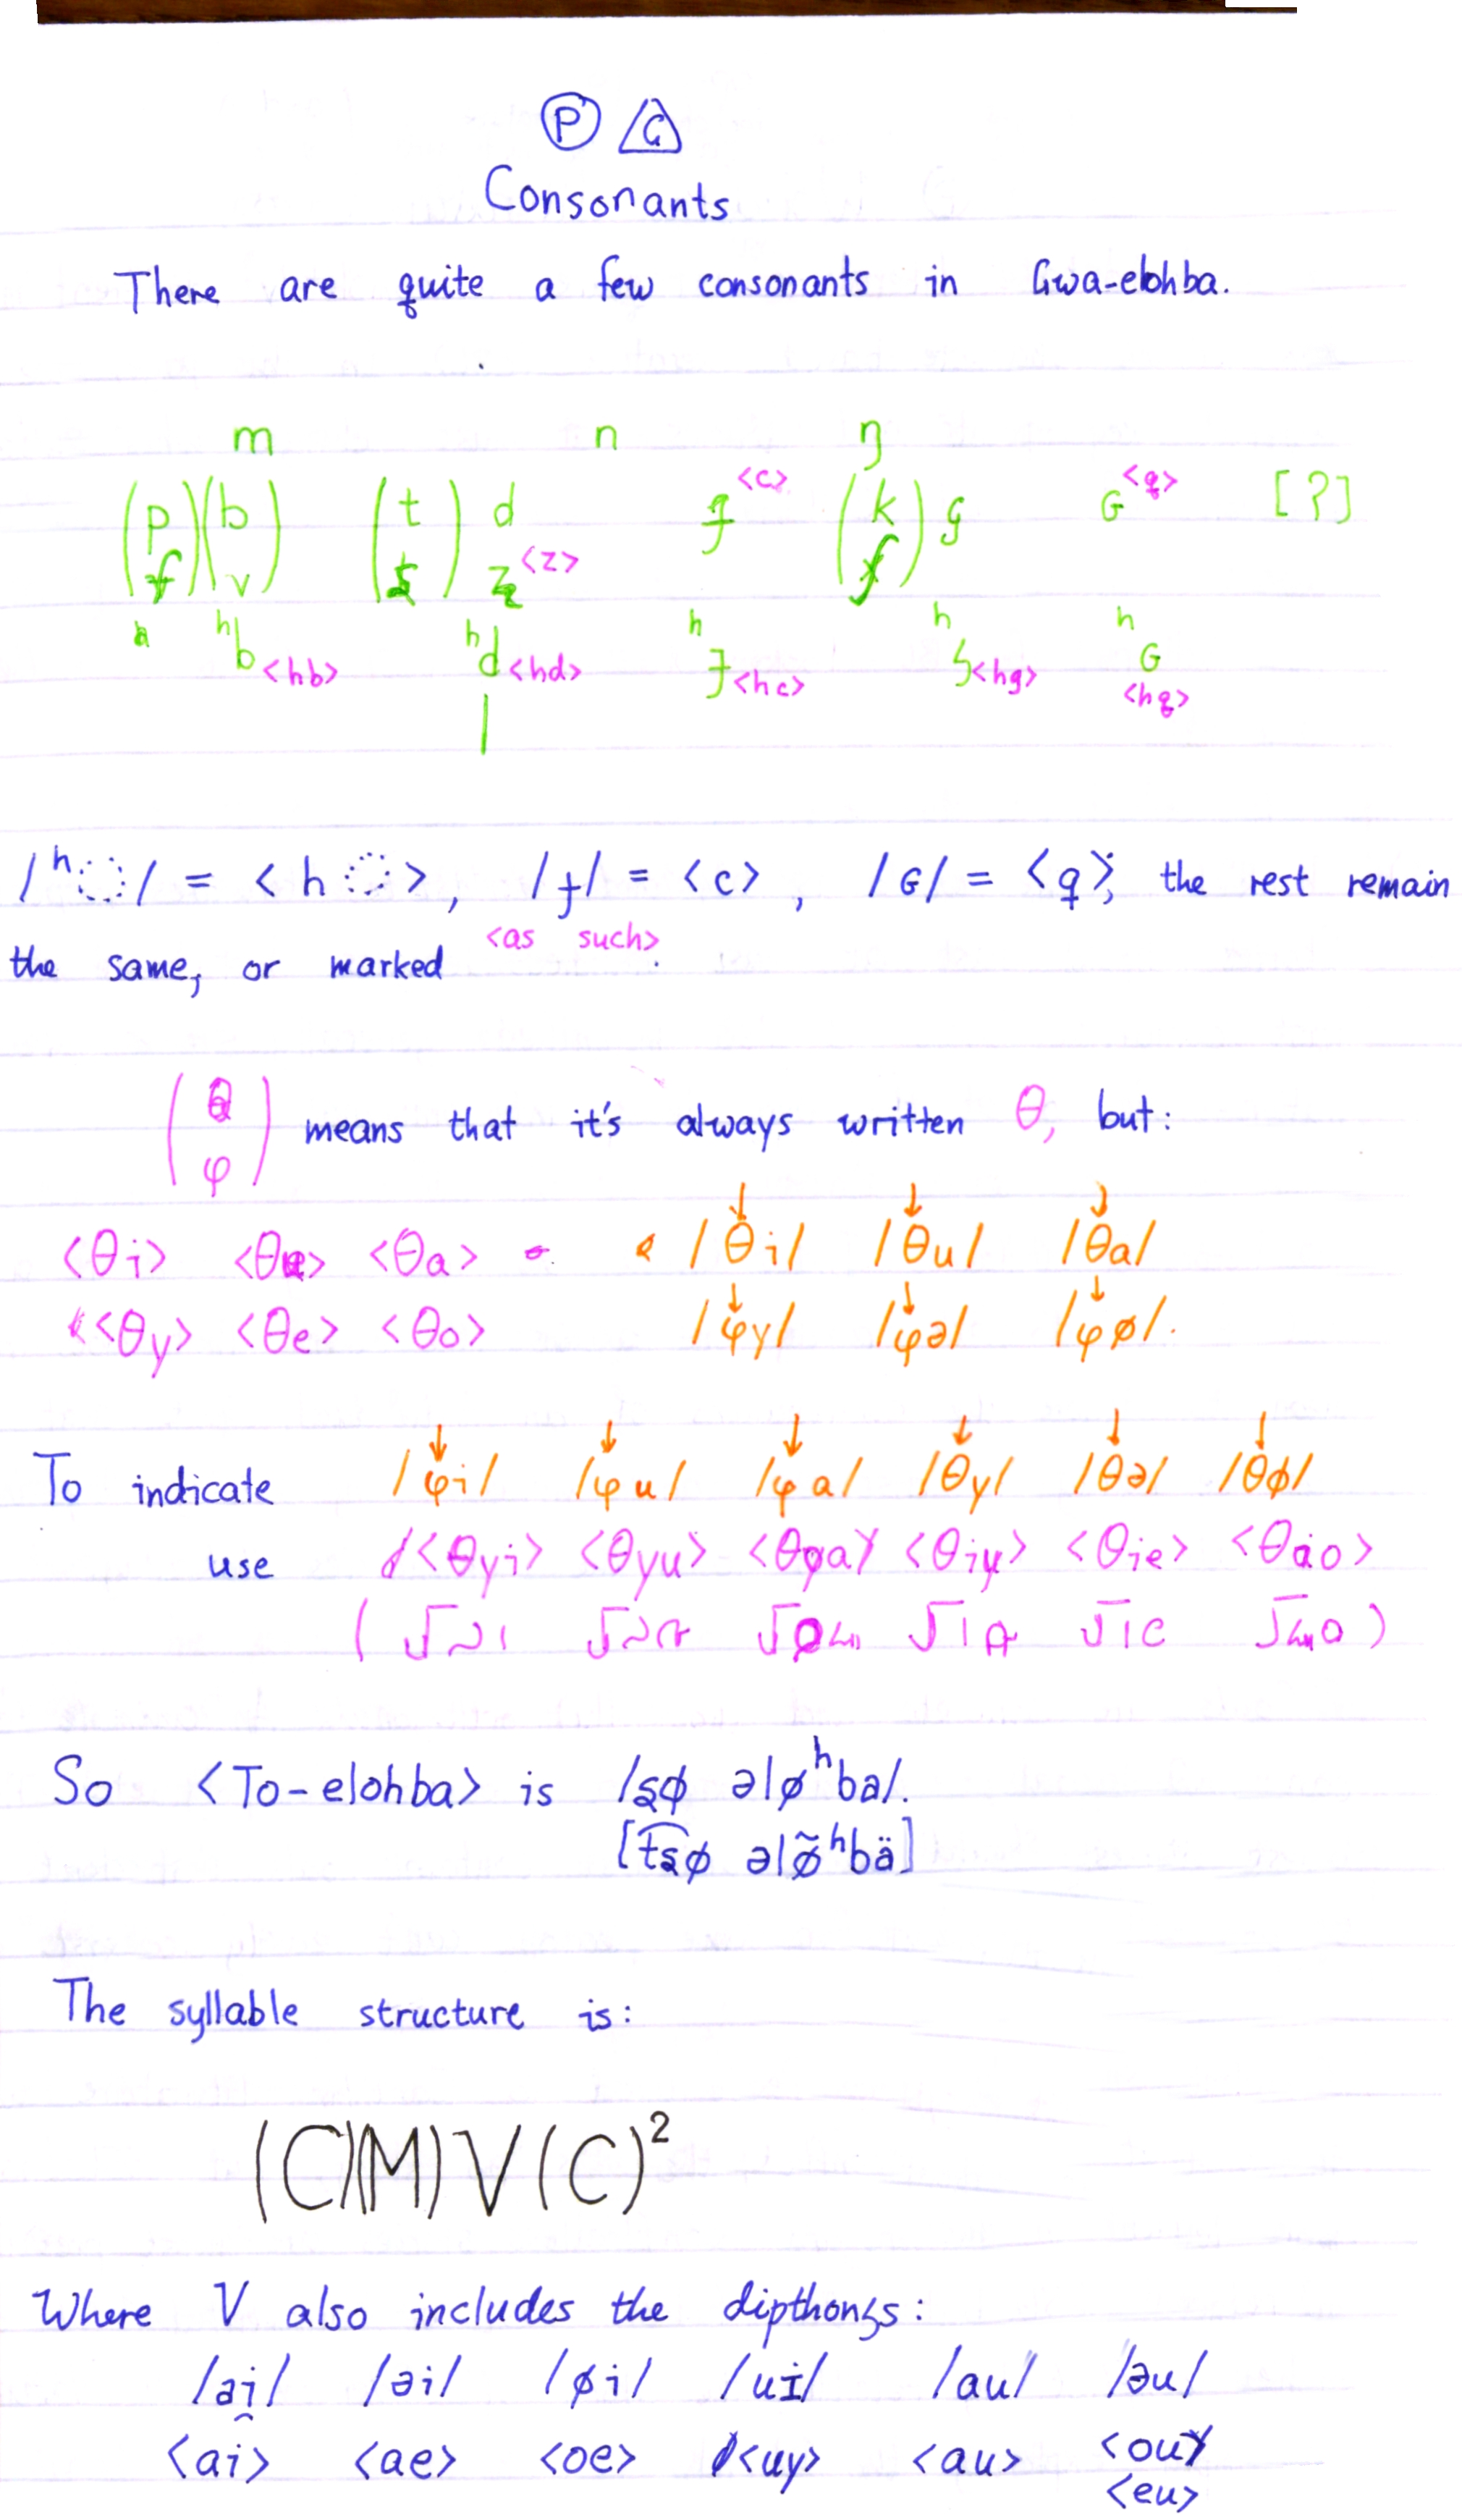 P G
Consonants
There are quite a few consonants in Gwa-elohba.
m n ŋ
p b t d ɟ <c> k g ɢ <q> [ʔ]
f v s z <z> x
ʰb <hb> ʰd <hd> ʰɟ <hc> ʰg <hg> ʰɢ <hq>
l
/ʰ◌/ = <h◌>, /ɟ/ = <c>, /ɢ/ = <q>; the rest remain
the same, or marked <as such>.
(θ
φ) means that it's always written θ, but:
<θi> <θu> <θa> /θi/ /θu/ /θa/
<θy> <θe> <θo> /φy/ /φə/ /φø/.
To indicate /φi/ /φu/ /φa/ /θy/ /θə/ /θø/
use <θyi> <θyu> <θoa> <θiy> <θie> <θao>
So <To-elohba> is /s̱ø əløʰba/.
[t͡s̱ø əlø̃ʰbä]
The syllable structure is:
(C)(M)V(C)²
Where V also includes the dipthongs:
/ai/ /əi/ /øi/ /uɪ/ /au/ /əu/
<ai> <ae> <oe> <uy> <au> <ou>
<eu>